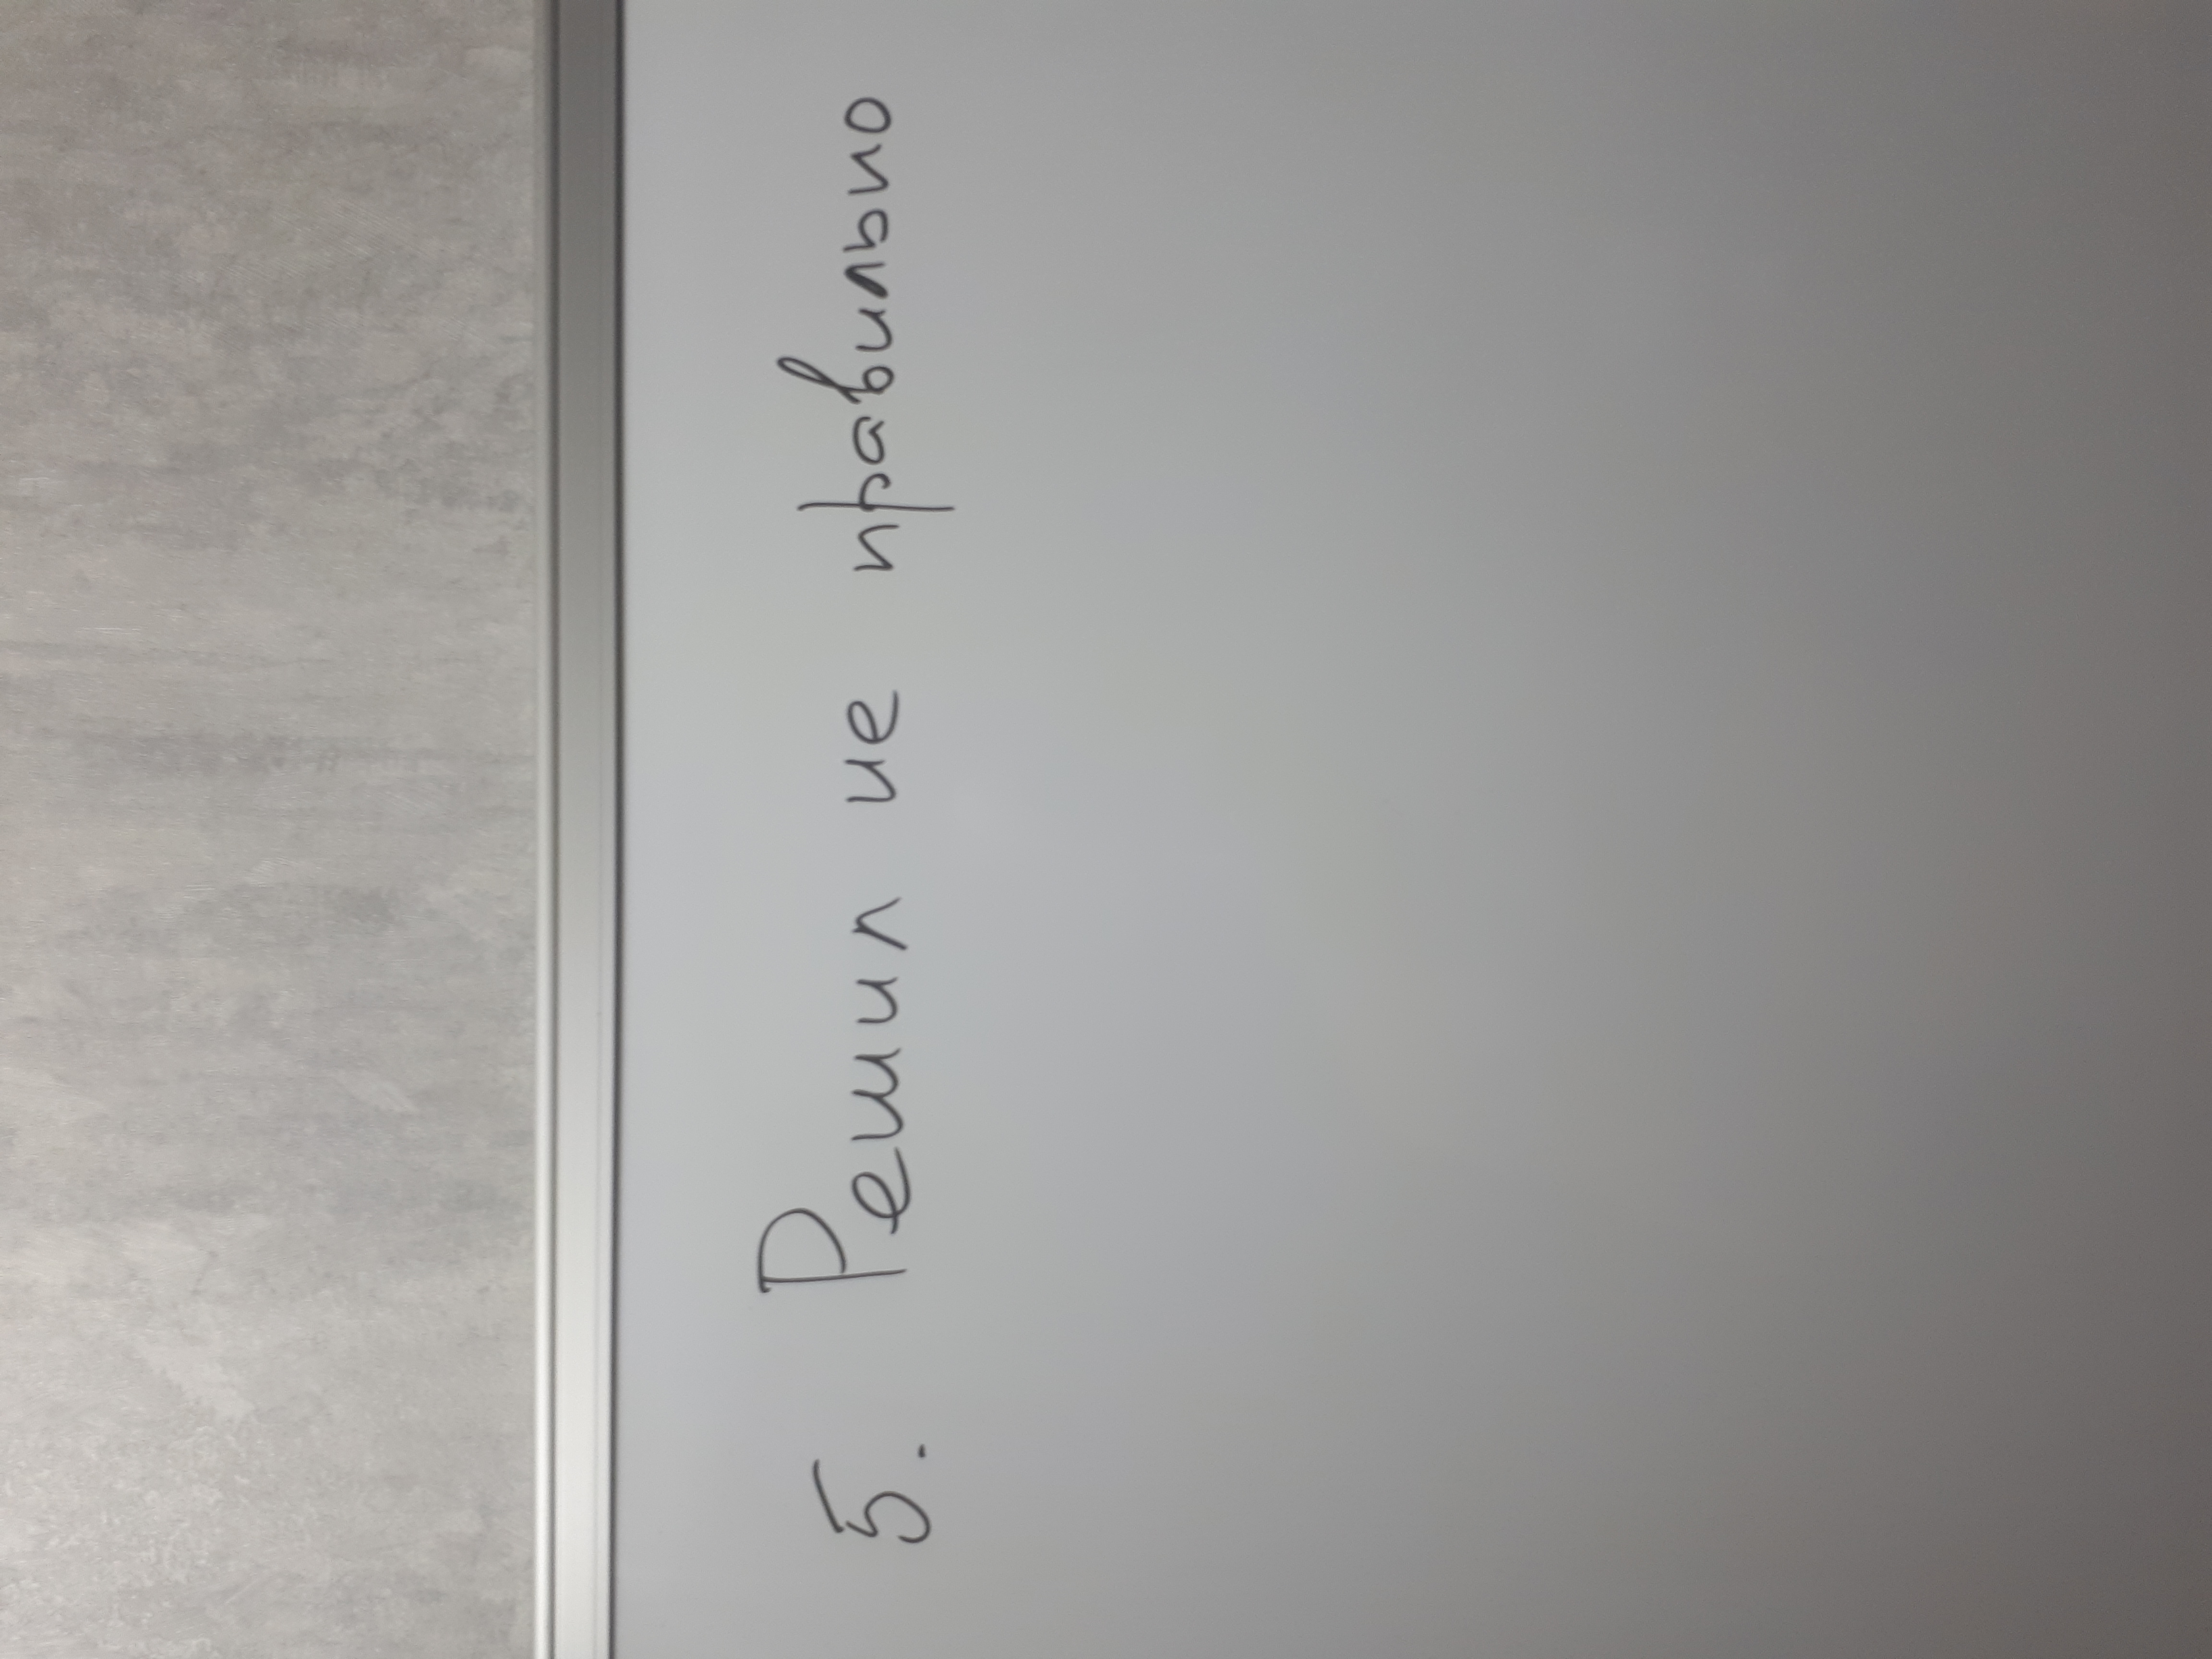 5. Решил не правильно